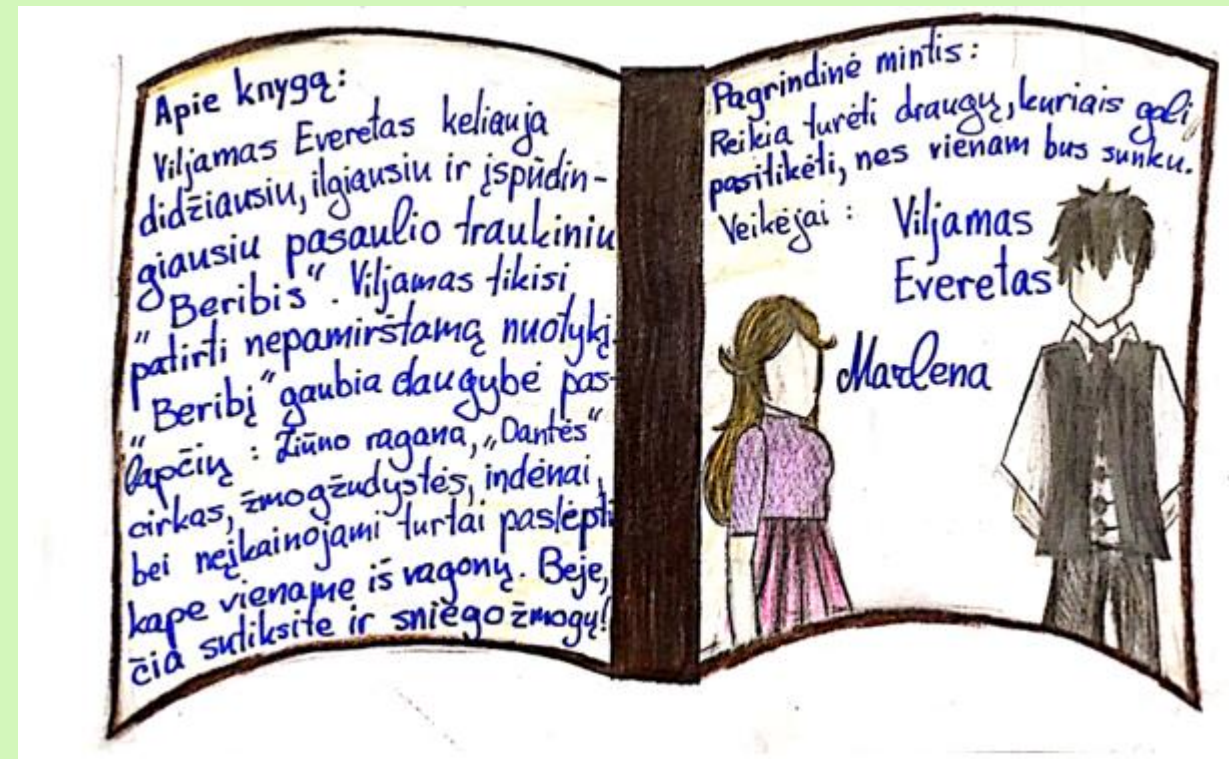 Apie knygą:
Viljamas Everetas keliauja
didžiausiu, ilgiausiu ir įspūdin-
giausiu pasaulio traukiniu
„Beribis“. Viljamas tikisi
patirti nepamirštamą nuotykį.
„Beribį“ gaubia daugybė pas-
lapčių: Liūno ragana, „Dantės“
cirkas, žmogžudystės, indėnai,
bei neįkainojami turtai paslėpti
kape viename iš vagonų. Beje,
čia sutiksite ir sniego žmogų!
Pagrindinė mintis:
Reikia turėti draugų, kuriais gali
pasitikėti, nes vienam bus sunku.
Veikėjai: Viljamas
Everetas
Marlena